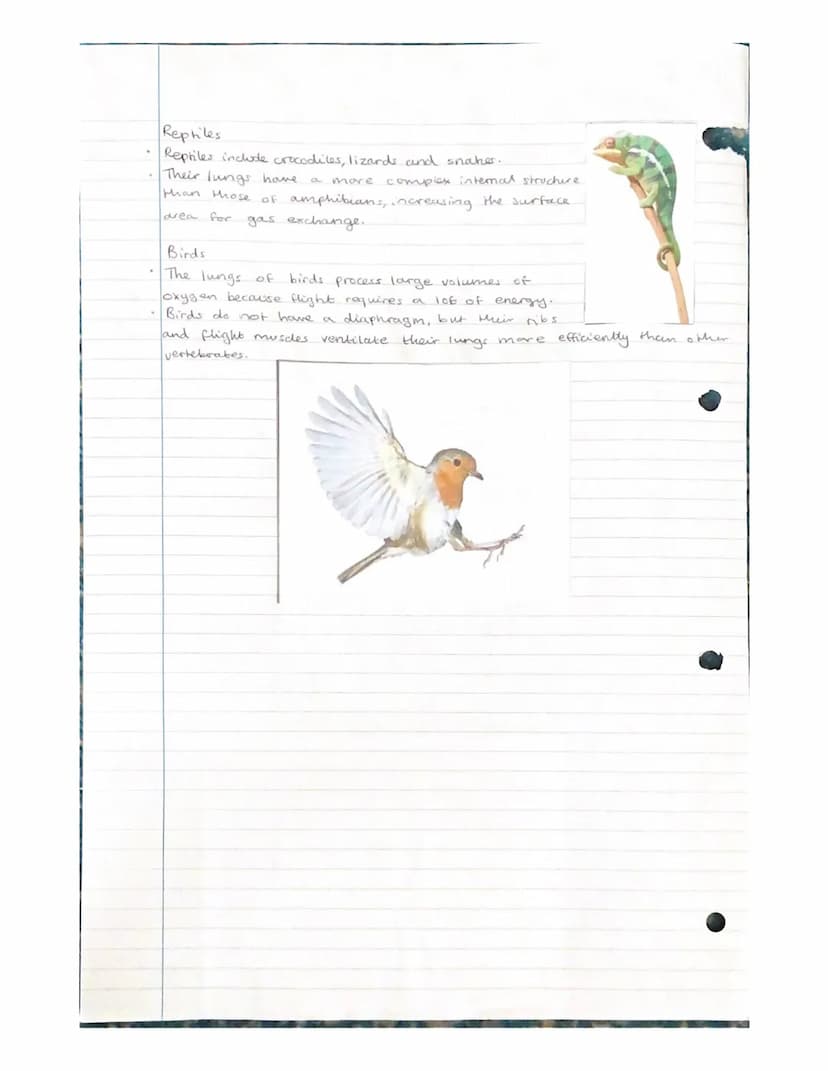 Reptiles
• Reptiles include crocodiles, lizards and snakes.
• Their lungs have a more complex internal structure
than those of amphibians, increasing the surface
area for gas exchange.
Birds
• The lungs of birds process large volumes of
oxygen because flight requires a lot of energy.
• Birds do not have a diaphragm, but their ribs
and flight muscles ventilate their lungs more efficiently than other
vertebrates.